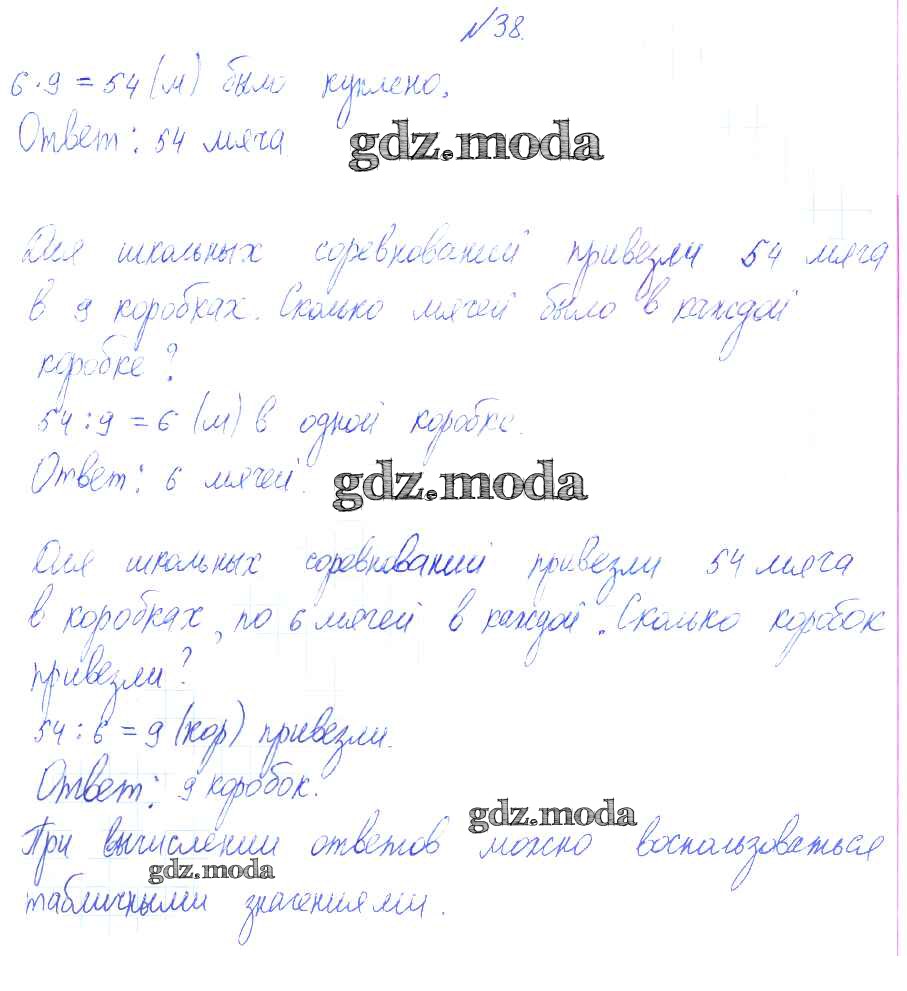 №38.
6·9=54(м) было куплено.
Ответ: 54 мяча
gdz.moda
Для школьных соревнований привезли 54 мяча
в 9 коробках. Сколько мячей было в каждой
коробке?
54:9=6(м) в одной коробке.
Ответ: 6 мячей.
gdz.moda
Для школьных соревнований привезли 54 мяча
в коробках, по 6 мячей в каждой. Сколько коробок
привезли?
54:6=9(кор) привезли.
Ответ: 9 коробок.
gdz.moda
При вычислении ответов можно воспользоваться
gdz.moda
табличными значениями.